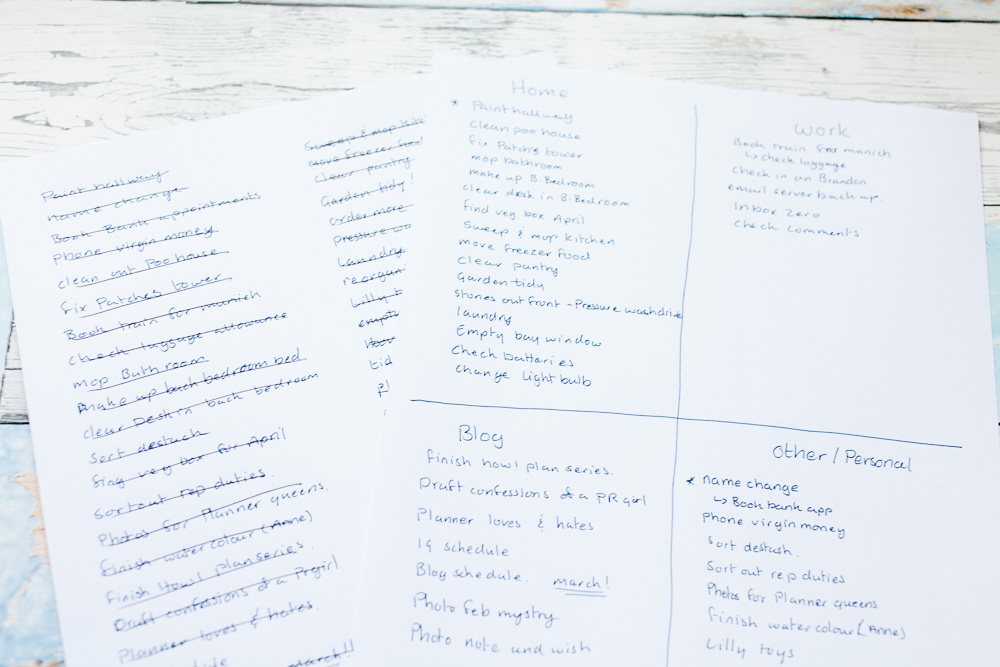 Paint hallway
name change
Book Bank appointments
Phone virgin money
clean out Poo house
fix Patches tower
Book train for munich
Check luggage allowance
mop Bathroom
Make up back bedroom bed
clear Desk in back bedroom
Sort destash
veg box for April
Sort out rep duties
Photos for Planner queens.
Finish watercolour (Anne)
Finish How I plan series.
Draft confessions of a PR girl
Planner loves & hates.
March!!
Sweep & mop kitc
move freezer food
clear pantry
Garden tidy!
order more
pressure wa
Laundry
reorgan
Lilly t
empty
tid
Home
* Paint hallway
Clean poo house
fix Patchs tower
mop bathroom
make up B.Bedroom
clear desk in B.Bedroom
find veg box April
Sweep & mop kitchen
move freezer food
Clear pantry
Garden tidy
stones out front - Pressure wash drive
laundry
Empty bay window
Check batteries
change lightbulb
Work
Book train for munich
↳ check luggage
check in on Brandon
email server back up.
Inbox zero
check comments
Blog
Finish how I plan series.
Draft confessions of a PR girl
Planner loves & hates
IG schedule
Blog schedule. march!
Photo feb mystry
Photo note and wish
Other / Personal
* name change
↳ Book bank app
Phone virgin money
Sort destash.
Sort out rep duties
Photos for Planner queens
Finish watercolour (Anne)
Lilly toys